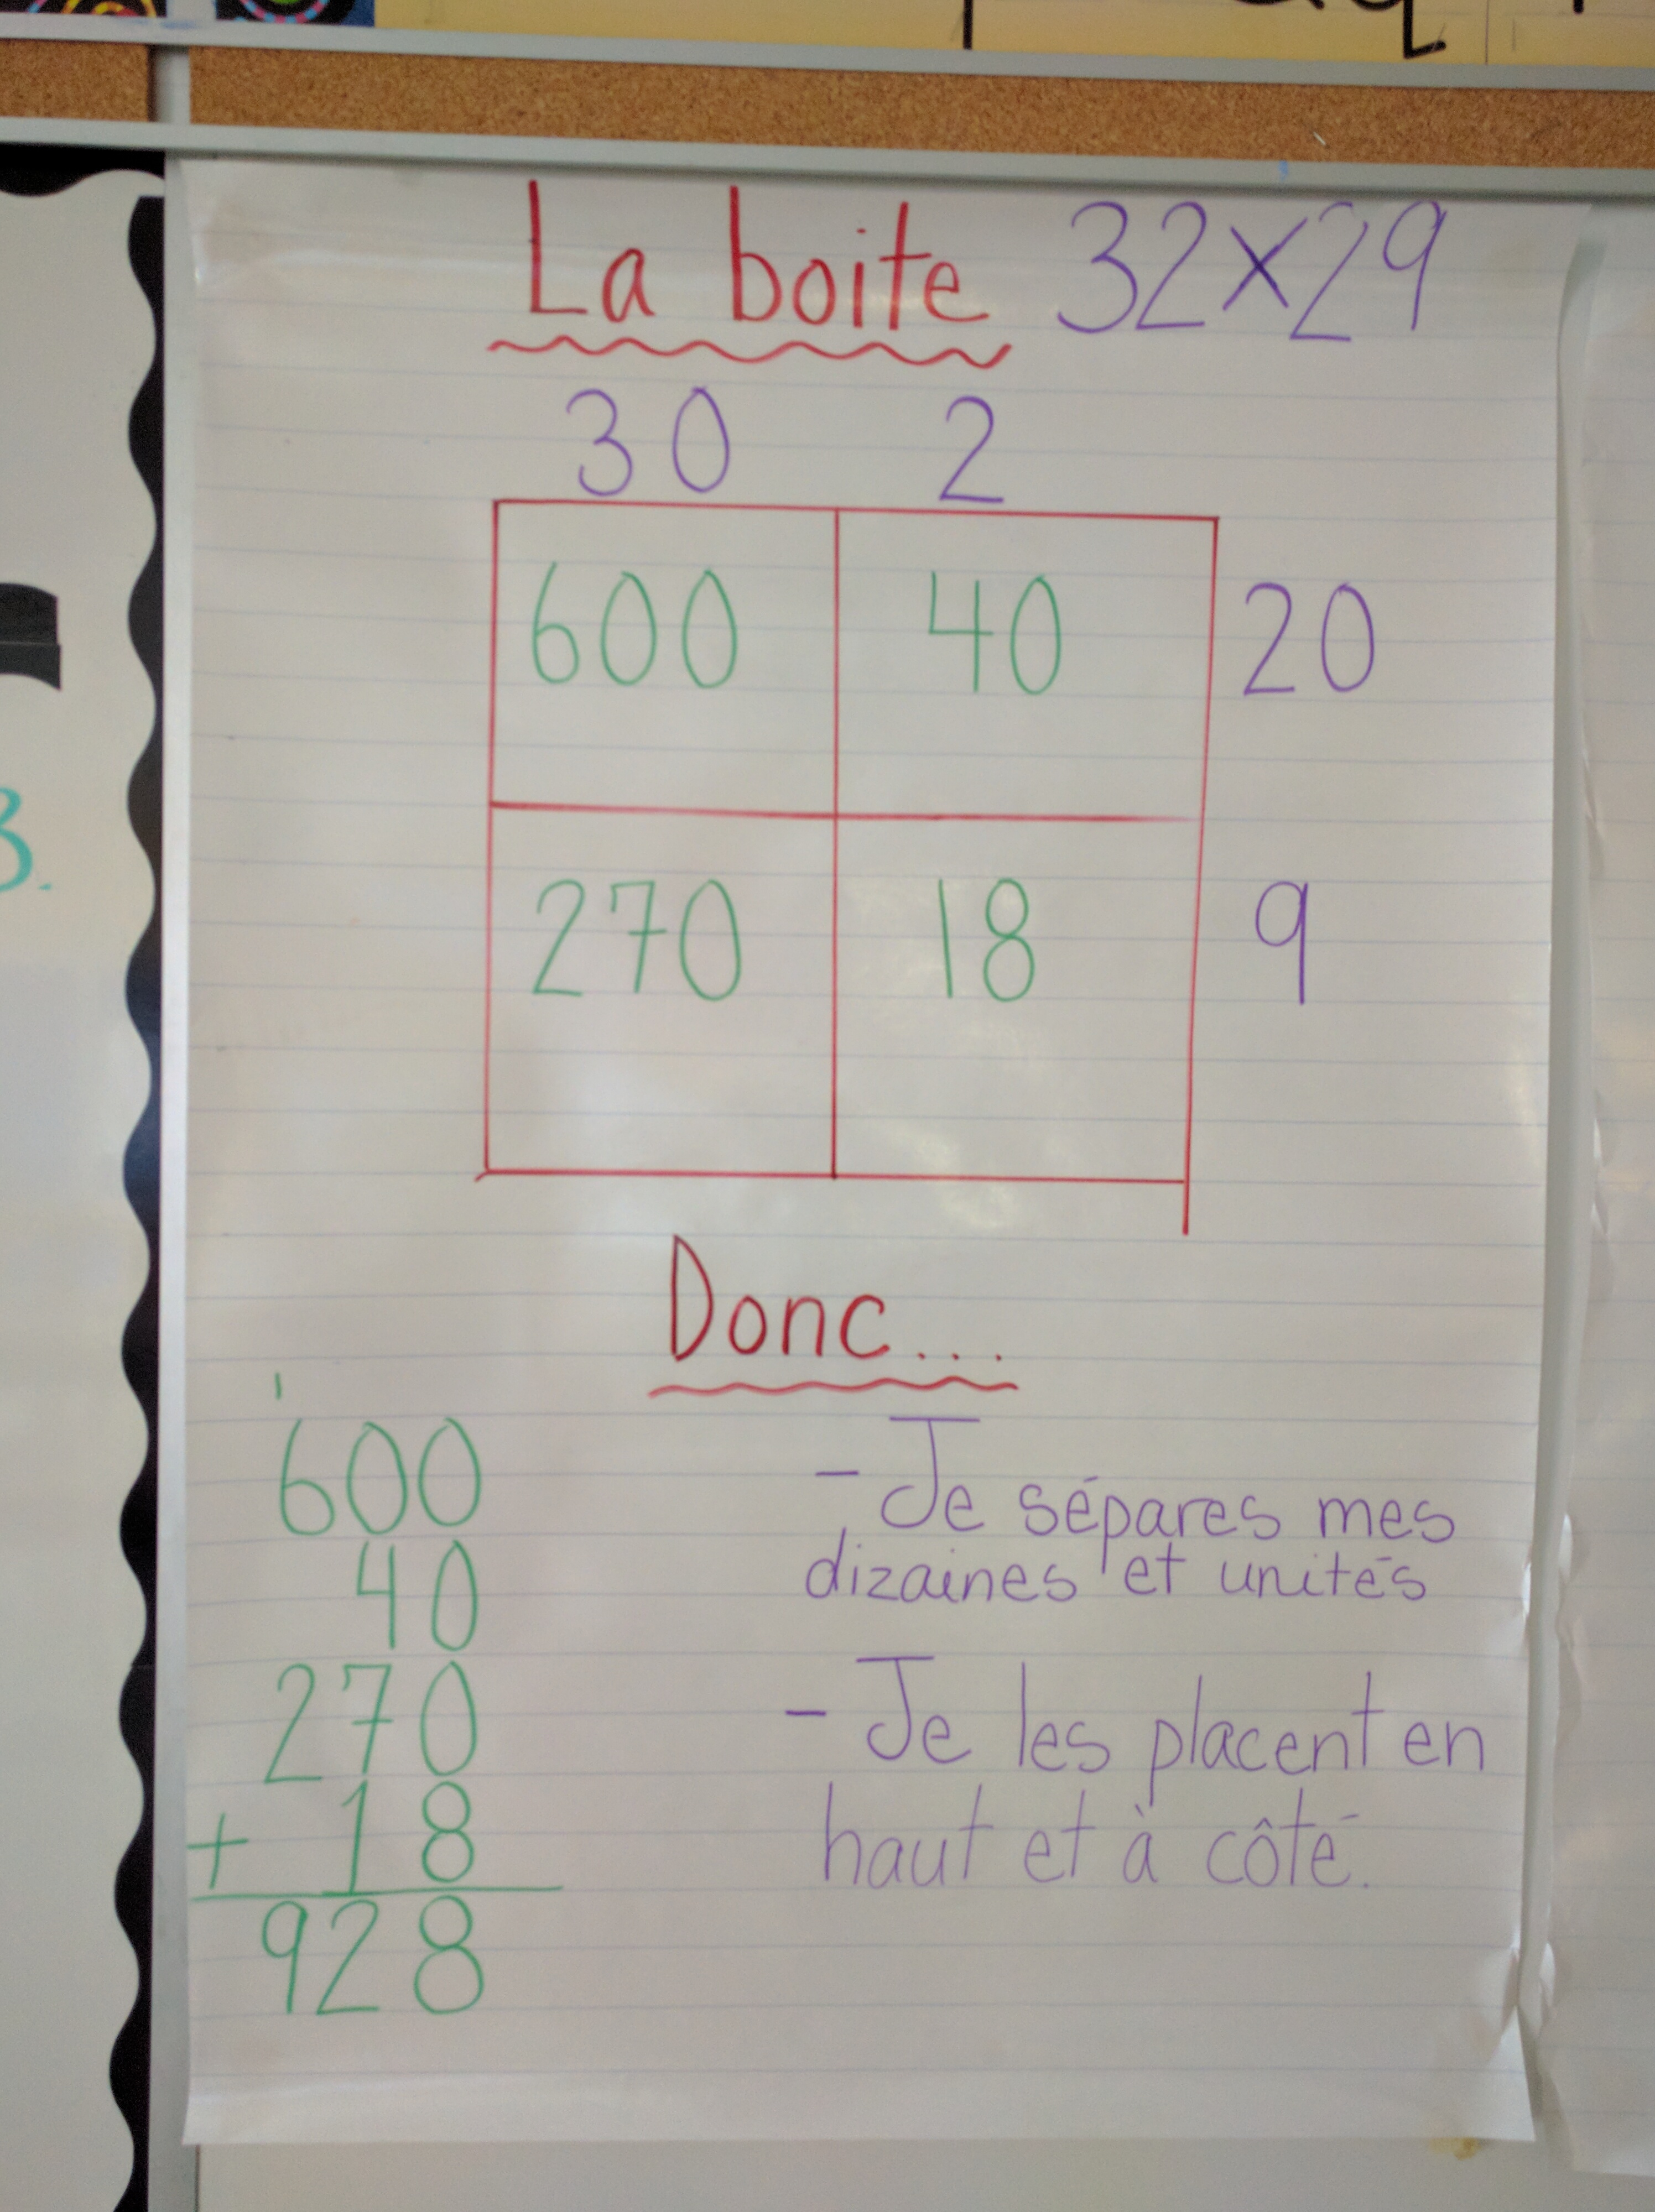 La boite 32x29
30 2
600 40 20
270 18 9
Donc...
600
40
270
+ 18
928
- Je sépares mes
dizaines et unités
- Je les placent en
haut et à côté.